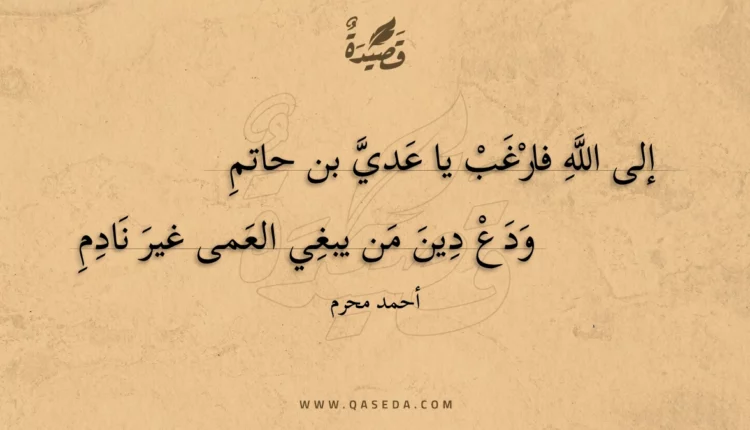 قَصِيْدَةٌ
إلى اللَّهِ فارْغَبْ يا عَديَّ بن حاتمِ
وَدَعْ دِينَ مَن يبغِي العَمى غيرَ نَادِمِ
أحمد محرم
WWW.QASEDA.COM